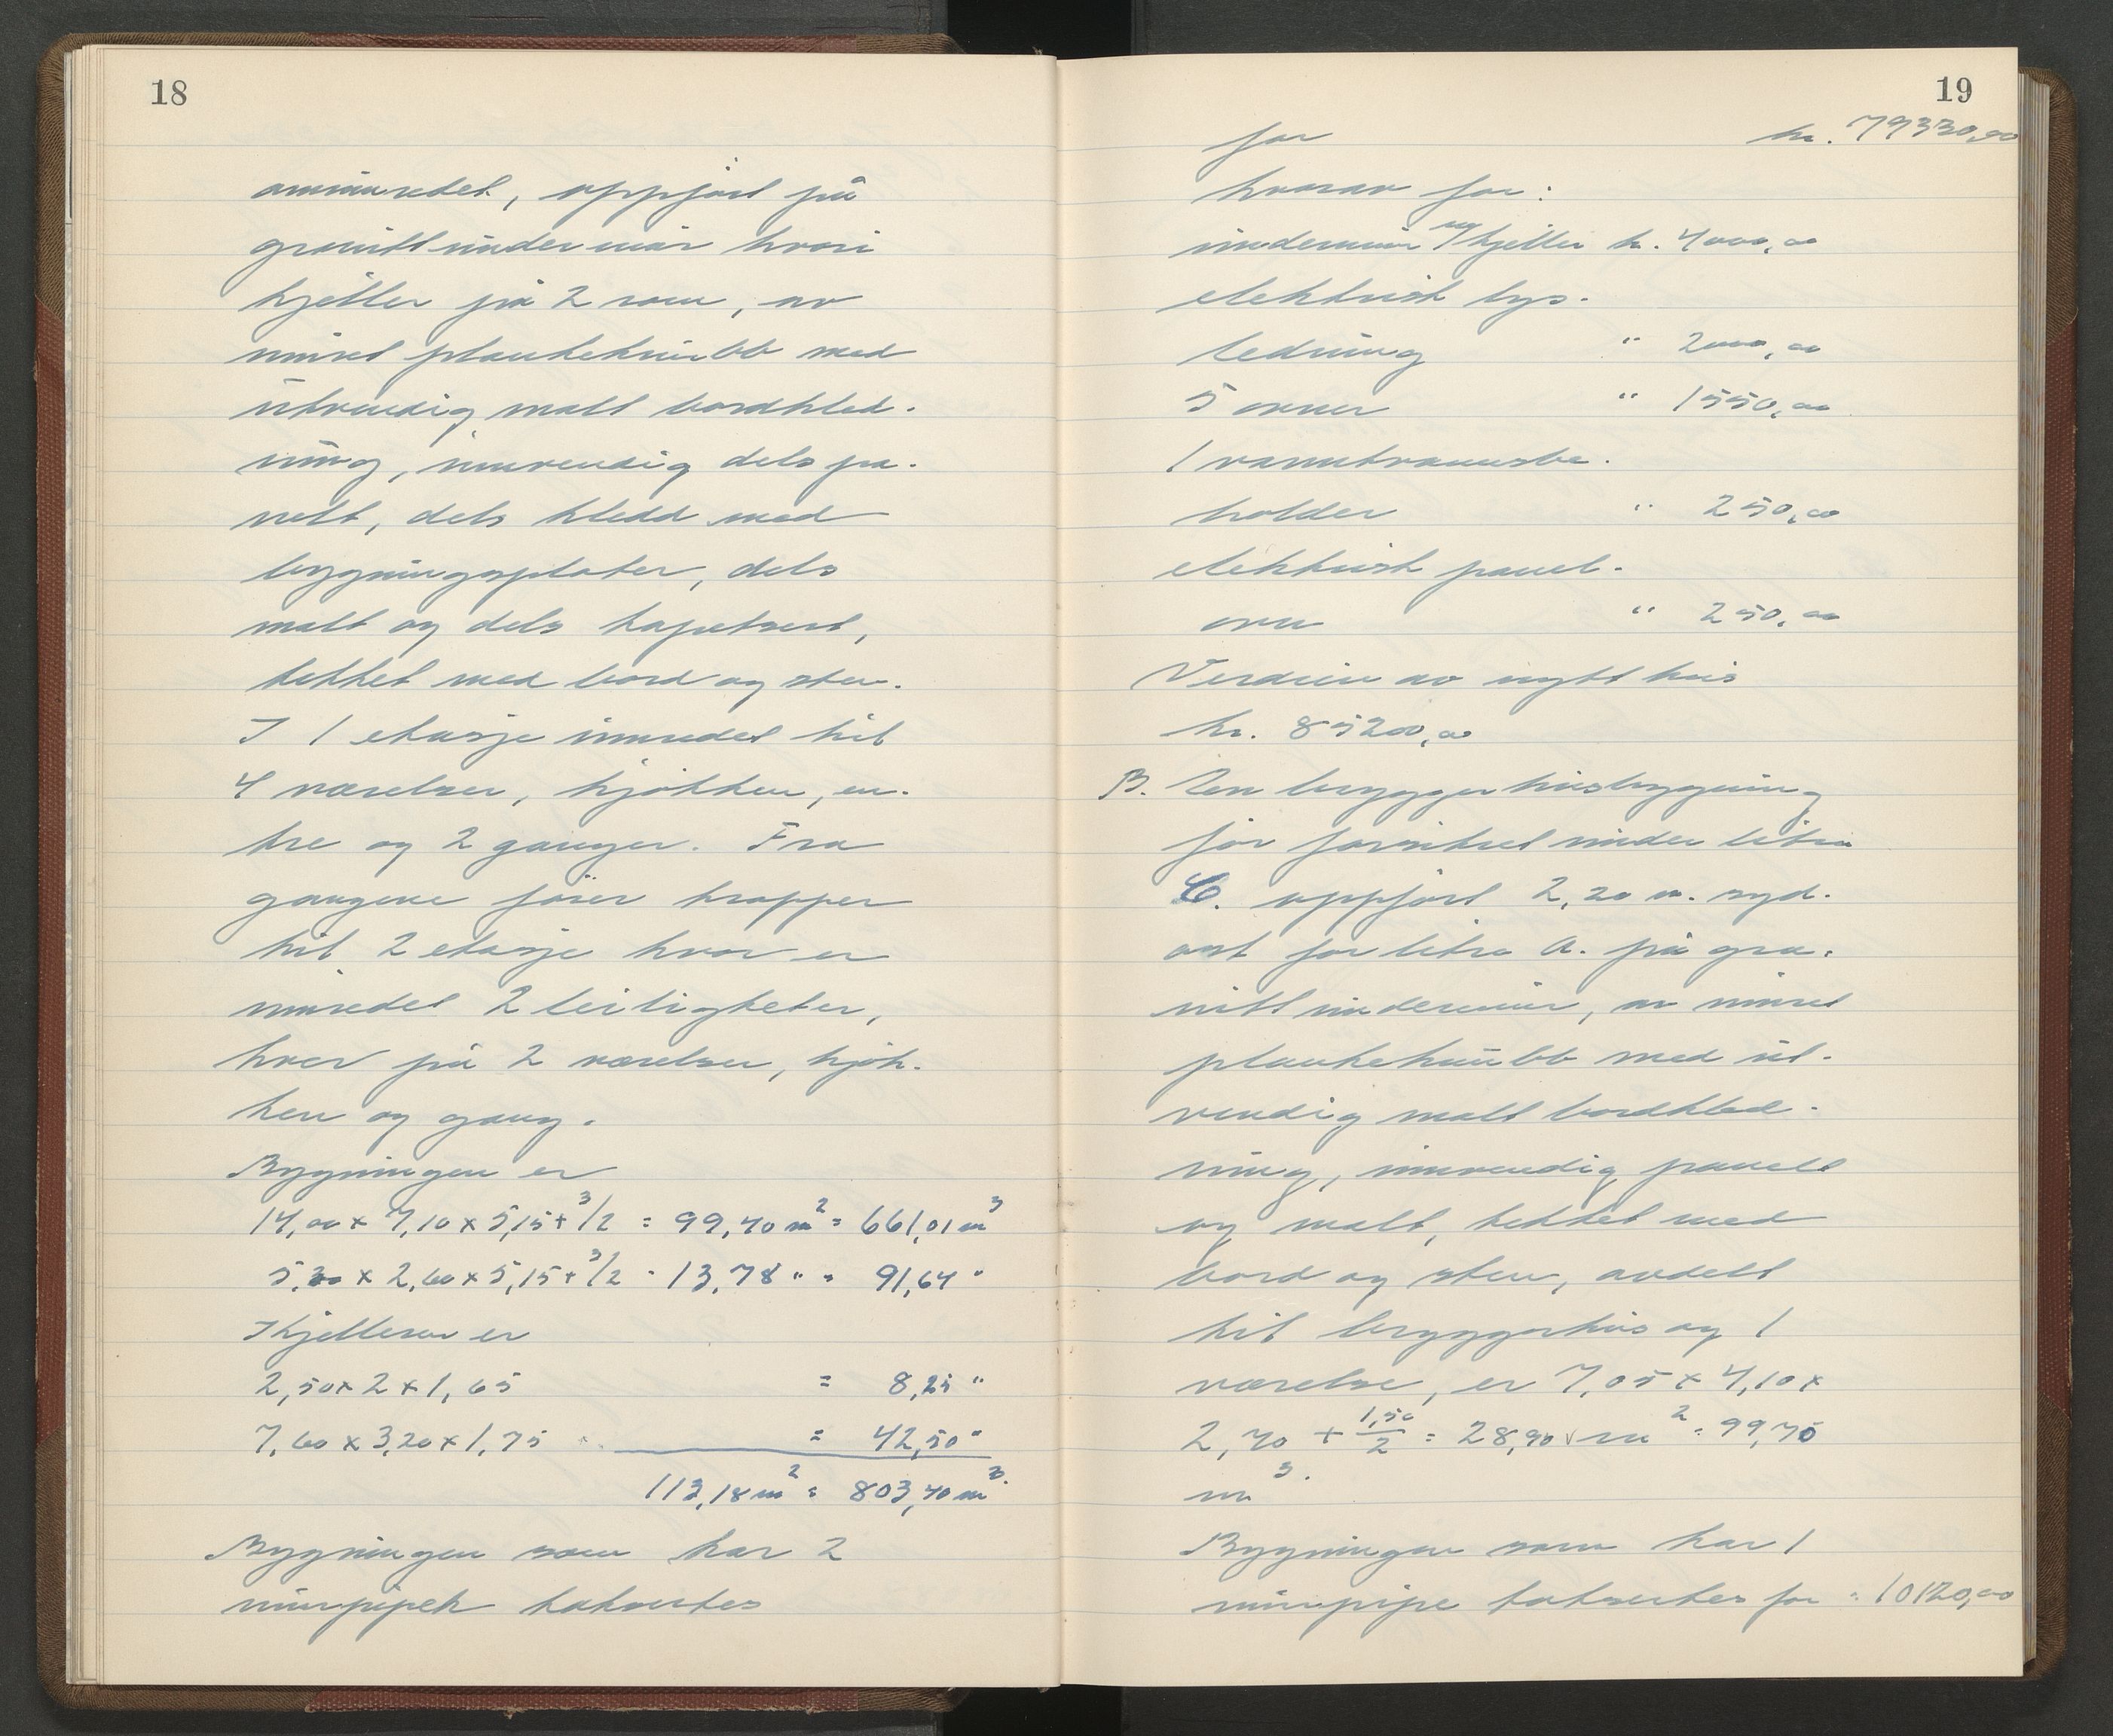 18
ominnredet, oppført på
granittundermur hvori
kjeller på 2 rom, av
muret plankekubb med
utvendig malt bordkled-
ning, innvendig dels pa-
nelt, dels kledd med
bygningsplater, dels
malt og dels tapetsert,
tekket med bord og sten.
I 1 etasje innredet til
4 værelser, kjøkken, en-
tre og 2 ganger. Fra
gangene fører trapper
til 2 etasje hvor er
innredet 2 leiligheter,
hver på 2 værelser, kjøk-
ken og gang.
Bygningen er
14,00 x 7,10 x 5,15 + 3/2 = 99,40 m² = 661,01 m³
5,30 x 2,60 x 5,15 + 3/2 = 13,78 " = 91,64 "
Kjelleren er
2,50 x 2 x 1,65 = 8,25 "
7,60 x 3,20 x 1,75 = 42,50 "
113,18 m² = 803,40 m³.
Bygningen som har 2
murpiper takseres
19
for kr. 79330,00
hvorav for:
undermur m/kjeller kr. 4000,00
elektrisk lys-
ledning " 2000,00
5 ovner " 1550,00
1 vanntrannsbe-
holder " 250,00
elektrisk panel-
ovn " 250,00
Verdien av nytt hus
kr. 85200,00
B. En bryggerhusbygning
før forsikret under litra
C. oppført 2,20 m. syd-
ost for litra A. på gra-
nittundermur, av muret
plankekubb med ut-
vendig malt bordkled-
ning, innvendig panelt
og malt, tekket med
bord og sten, avdelt
til bryggerhus og 1
værelse, er 7,05 x 4,10 x
2,70 + 1,50/2 = 28,90 m² = 99,70
m³.
Bygningen som har 1
murpipe takseres for " 10120,00